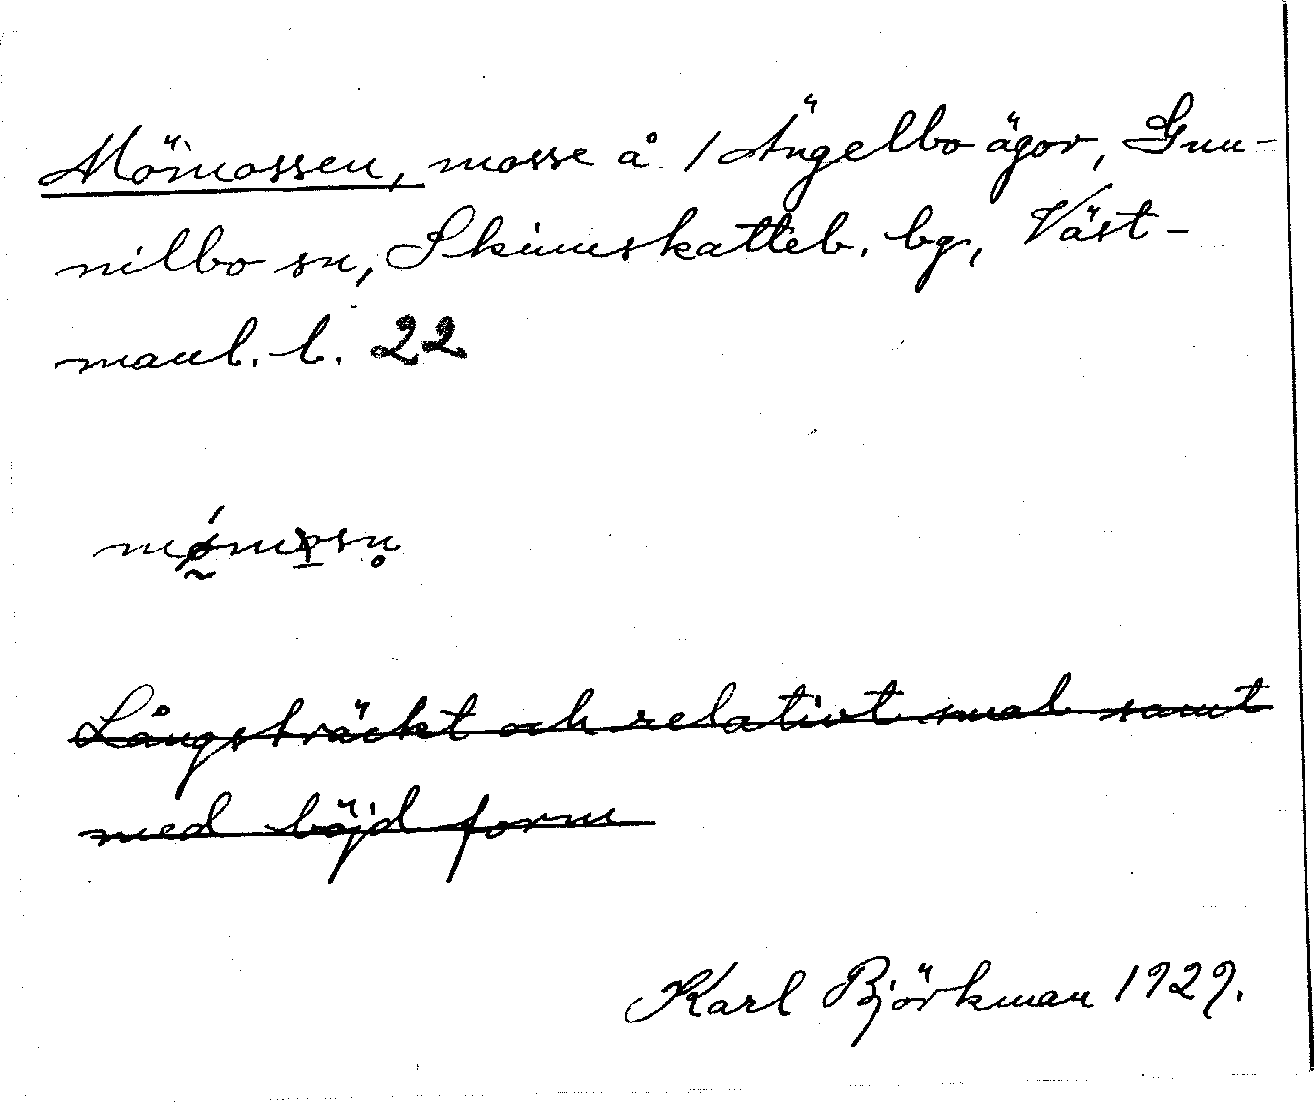 Mömossen, mosse å / Ängelbo ägor, Gun-
nilbo sn, Skinnskatteb. bg, Väst-
manl. l. 22
Långsträckt och relativt smal samt
med böjd form
Karl Björkman 1929.